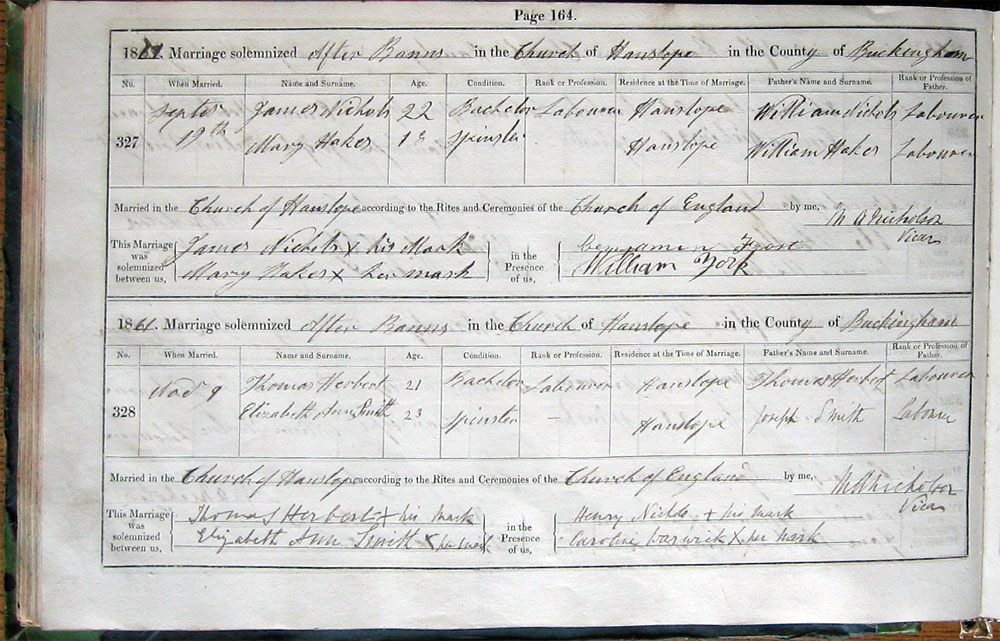 Page 164.
1861. Marriage solemnized After Banns in the Church of Hanslope in the County of Buckingham
No. When Married. Name and Surname. Age. Condition. Rank or Profession. Residence at the Time of Marriage. Father's Name and Surname. Rank or Profession of Father.
Septr James Nichols 22 Bachelor Labourer Hanslope William Nichols Labourer
327 Mary Haker 18 Spinster Hanslope William Haker Labourer
Married in the Church of Hanslope according to the Rites and Ceremonies of the Church of England by me, M A Nicholson
Vicar
This Marriage was solemnized between us, James Nichols x his Mark in the Presence of us, Benjamin
Mary Haker x her mark William York
1861. Marriage solemnized After Banns in the Church of Hanslope in the County of Buckingham
No. When Married. Name and Surname. Age. Condition. Rank or Profession. Residence at the Time of Marriage. Father's Name and Surname. Rank or Profession of Father.
Novr 9 Thomas Herbert 21 Bachelor Labourer Hanslope Thomas Herbert Labourer
328 Elizabeth Ann Smith 23 Spinster – Hanslope Joseph Smith Labourer
Married in the Church of Hanslope according to the Rites and Ceremonies of the Church of England by me, M A Nicholson
Vicar
This Marriage was solemnized between us, Thomas Herbert x his mark in the Presence of us, Henry x his mark
Elizabeth Ann Smith x her mark Caroline Warwick x her mark